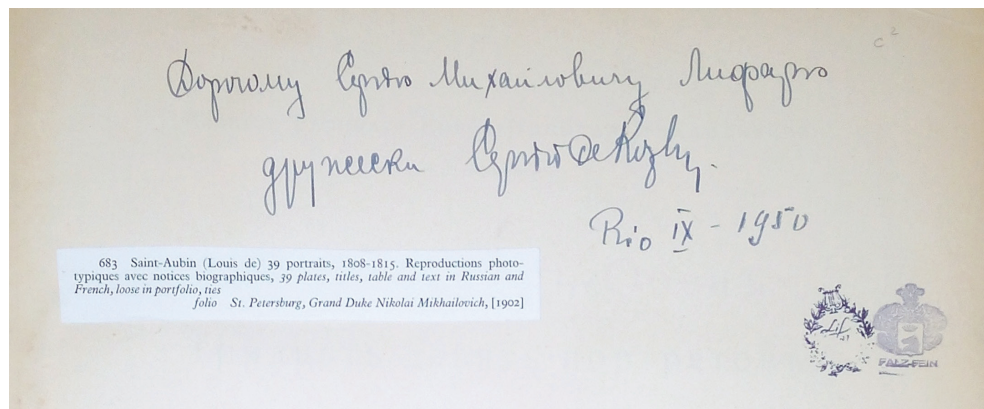 Дорогому Сергею Михайловичу Лифарю
дружески
Rio IX - 1950
683 Saint-Aubin (Louis de) 39 portraits, 1808-1815. Reproductions photo-
typiques avec notices biographiques, 39 plates, titles, table and text in Russian and
French, loose in portfolio, ties
folio St. Petersburg, Grand Duke Nikolai Mikhailovich, [1902]
FALZ-FEIN